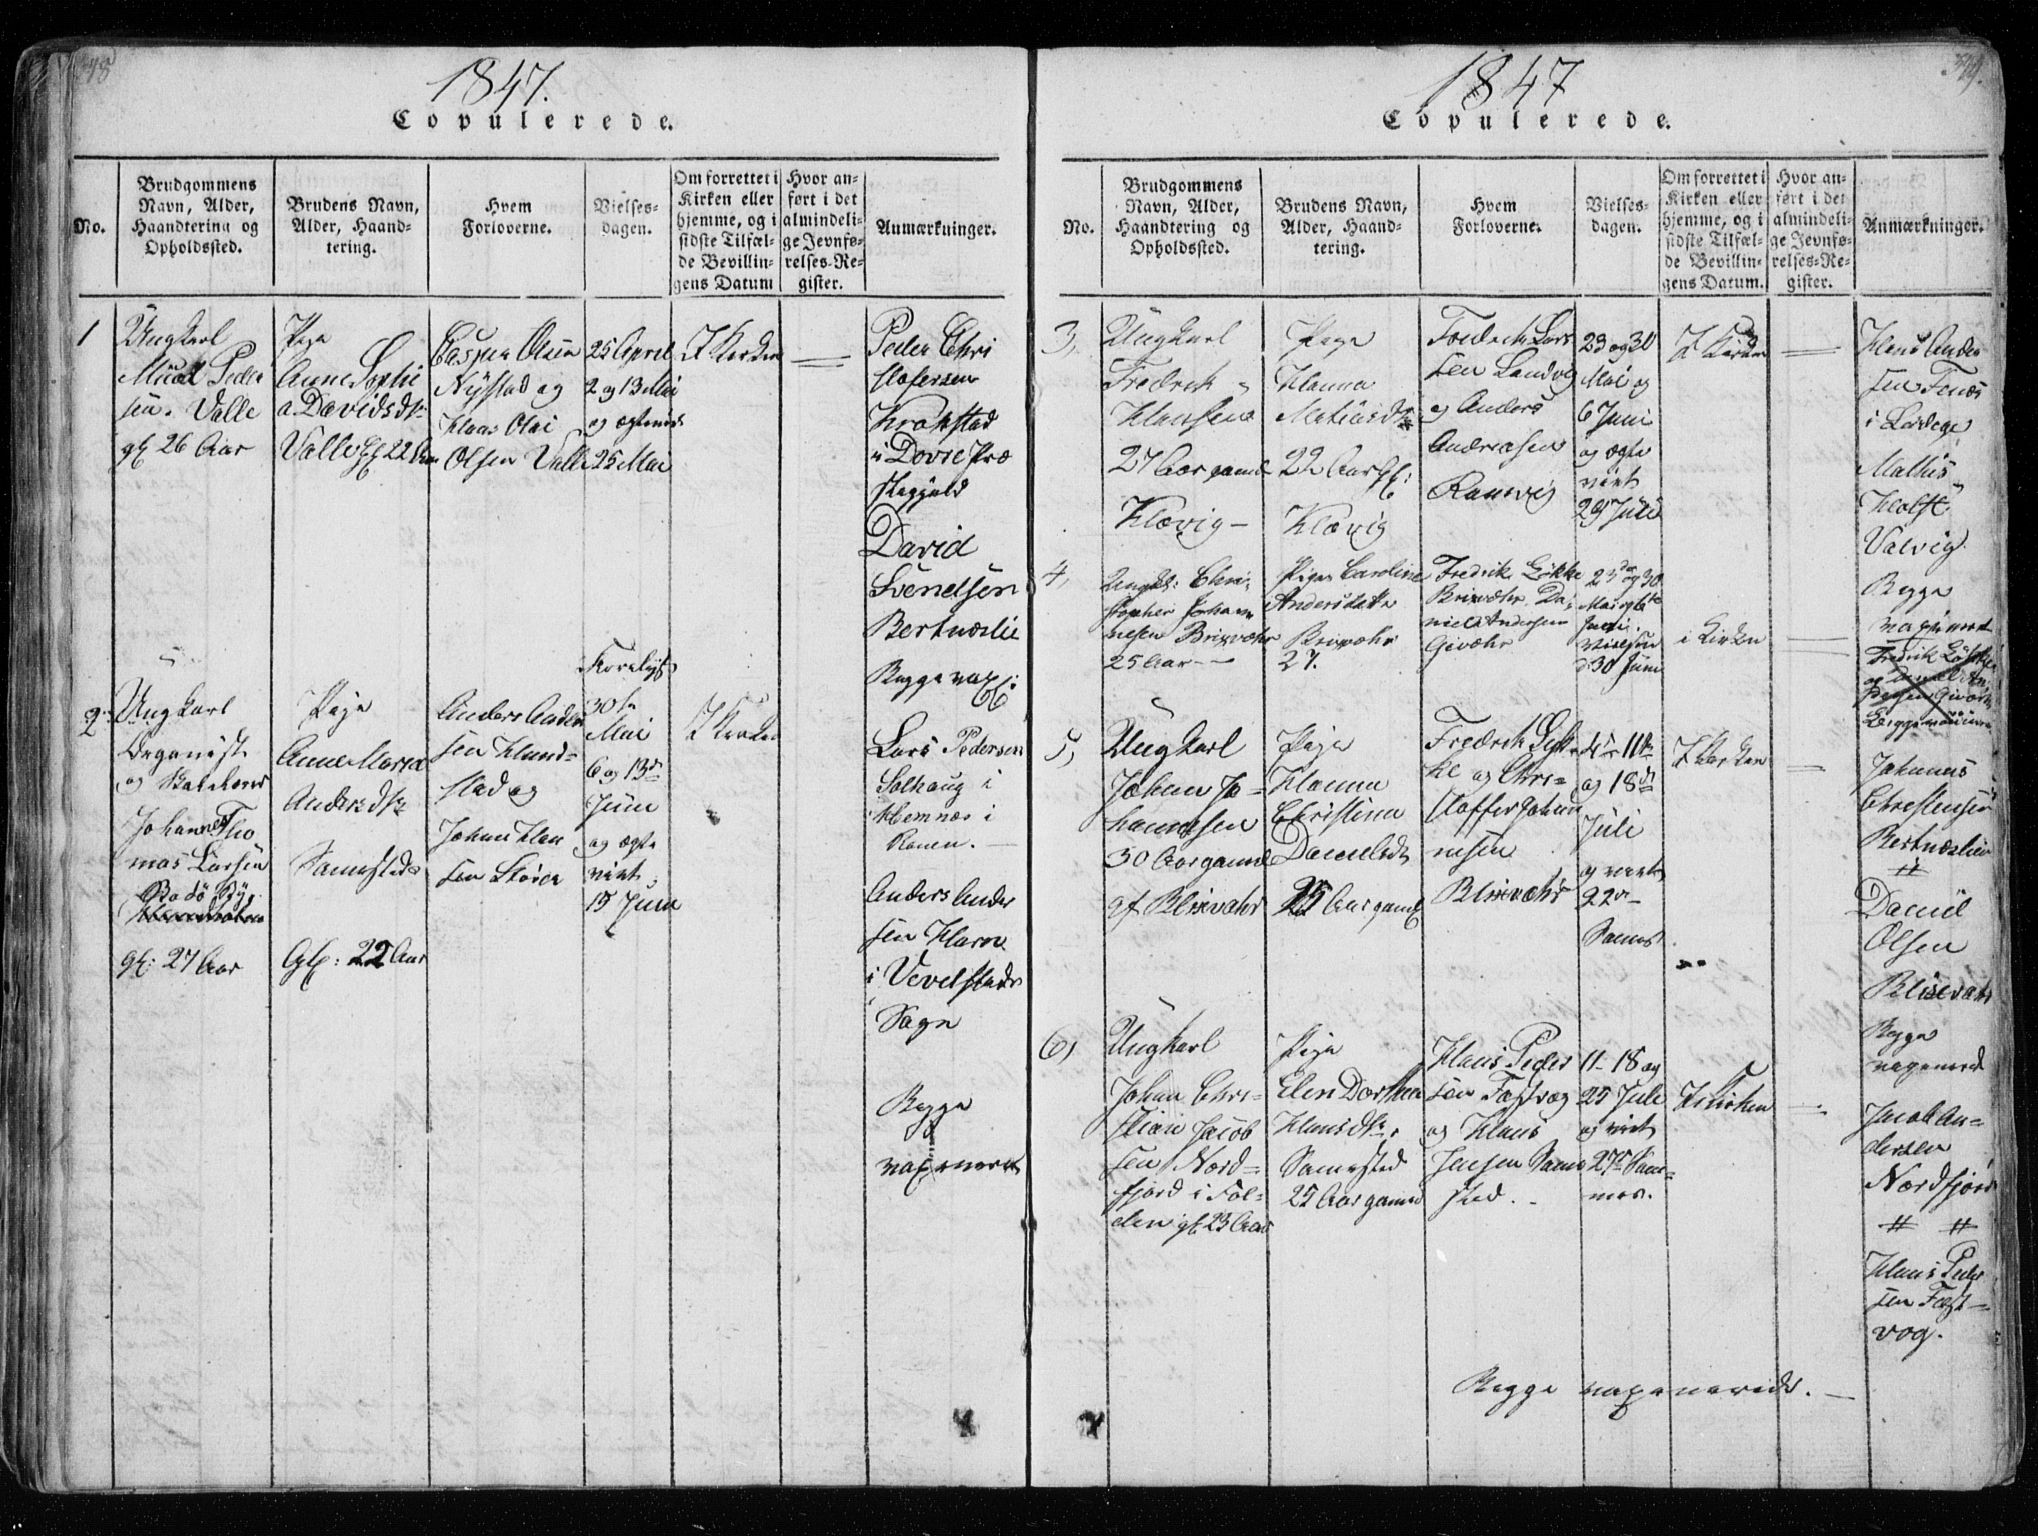 1847.
Copulerede.
No.
Brudgommens
Navn, Alder,
Haandtering og
Opholdssted.
Brudens Navn,
Alder, Haand-
tering.
Hvem
Forloverne.
Vielses-
dagen.
Om forrettet i
Kirken eller
hjemme, og i
sidste Tilfæl-
de Bevillin-
gens Datum
Hvor an-
ført i det
almindeli-
ge Jevnfø-
relses-Re-
gister.
Anmærkninger.
1
Ungkarl
Peder
sen. Valle
gl 26 Aar
Pige
Anne Sophie
Davidsdtr
Valle gl 22 Aar
Casper Olsen
Nystad og
Hans Olai
Olsen Valle
25 April
2 og 13 Mai
og ægteviet
25 Mai
I Kirken
Peder Chri
stofersen
Krokstad
i Dovre Præ
stegjeld
David
Svendsen
Bertnælie
Begge vax:
2
Ungkarl
Organist
og
Johannes Tho
mas Larsen
Bodö Bÿg
gl: 27 Aar
Pige
Anne Maria
Andersdtr
Samested
Gl: 22 Aar
Anders Ander
sen Hund-
stad og
Johan Han
sen Stöver
Forelyst
30te
Mai
6 og 13de
Juni
og ægte
viet
15 Juni
I Kirken
Lars Pedersen
Solhaug i
Hemnæs i
Ranen.
Anders Ander
sen Havn
i Vevelstads
Sogn
Begge
vaxinerede
1847
Copulerede.
No.
Brudgommens
Navn, Alder,
Haandtering og
Opholdssted.
Brudens Navn,
Alder, Haand-
tering.
Hvem
Forloverne.
Vielses-
dagen.
Om forrettet i
Kirken eller
hjemme, og i
sidste Tilfæl-
de Bevillin-
gens Datum.
Hvor an-
ført i det
almindeli-
ge Jevnfø-
relses-Re-
gister.
Anmærkninger.
3,
Ungkarl
Fredrik
Hansen
27 Aar gamel
Hlevig
Pige
Hanna
Matiasdtr
22 Aar gl:
Hlevig
Fredrik Lars
sen Landvig
og Anders
Andreasen
Ramvig
23 og 30
Mai og
6 Juni
og ægte
viet
29 Juli
I Kirken
Hans Ander
sen Fenes
i Lödege
Mathis
Holst
Valvig
Begge
vaxinered
4,
Ungkl: Chri-
stopher Johan
nesen Brixvær
25 Aar
Pigen Caroline
Andersdatter
Brixvær
27.
Fredrik Løkke
Brixvær. Da-
niel Andersen
Givær
23de og 30
Mai og 6te
Juni.
Vielsen
d: 30 Juni
i Kirken
5,
Ungkarl
Johan Jo-
hannesen
30 Aar gamel
af Blixvær
Pige
Hanna
Christina
Danielsdtr
25 Aar gamel
Fredrik Løk-
ke og Chri-
stoffer Johan
nesen
Blixvær
4de 11te
og 18de
Juli
og viet
22de
Sames
I Kirken
Johannes
Christensen
Bertnæslien
#
Daniel
Olsen
Blixvær
Begge
vaxinered
6,
Ungkarl
Johan Chri-
stian Jacob
sen Nord-
fjord i Fol-
den gl 23 Aar
Pige
Elen Dorthea
Hansdtr.
Samested
25 Aar gamel
Hans Peder
sen Fastvog
og Hans
Jensen Same
sted.
11- 18 og
25 Juli
og viet
27de Sam-
mes.
I Kirken
Jacob An-
dersen
Nordfjord
# #
Hans Peder
sen Fast-
vog.
Begge vaxinerede.